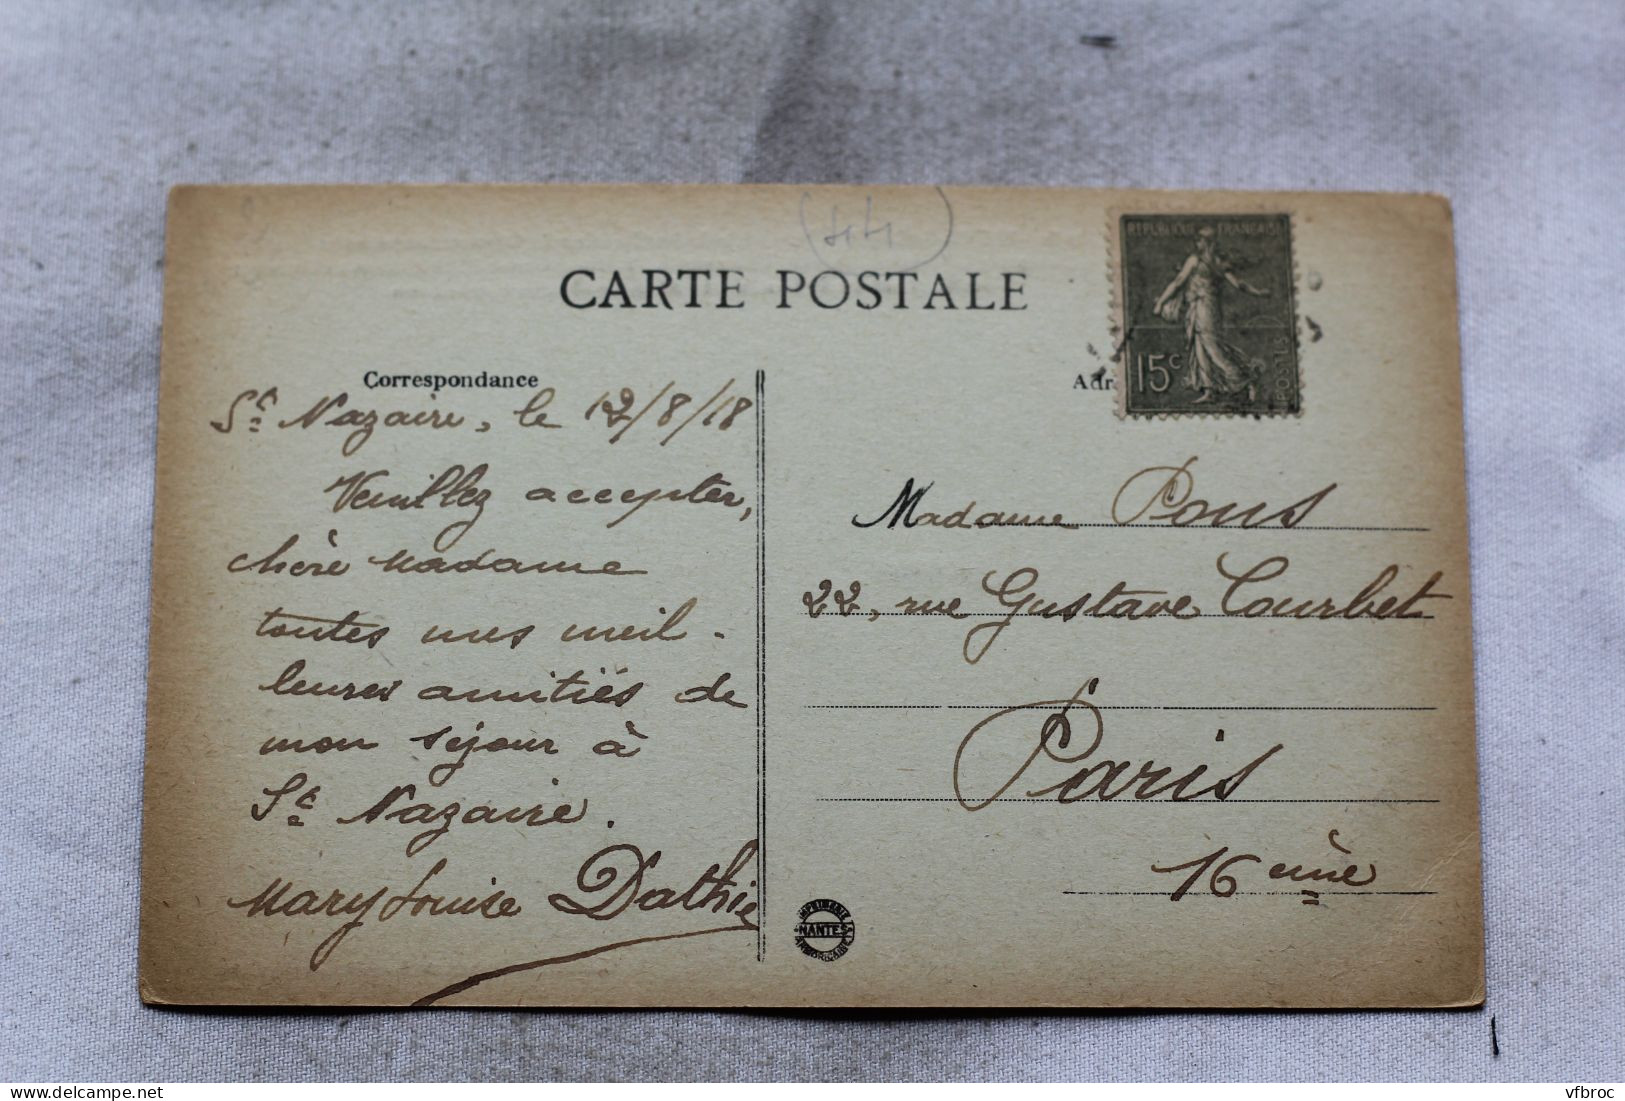 (44)
CARTE POSTALE
RÉPUBLIQUE FRANÇAISE
15c
POSTES
Correspondance
Adr
St Nazaire, le 12/8/18
Veuillez accepter,
chère Madame
toutes mes meil-
leures amitiés de
mon séjour à
St Nazaire.
Mary Louise Dathie
Madame Pons
22, rue Gustave Courbet
Paris
16 ème
IMPRIMERIE
NANTES
ARMORICAINE
vfbroc
delcampe.net